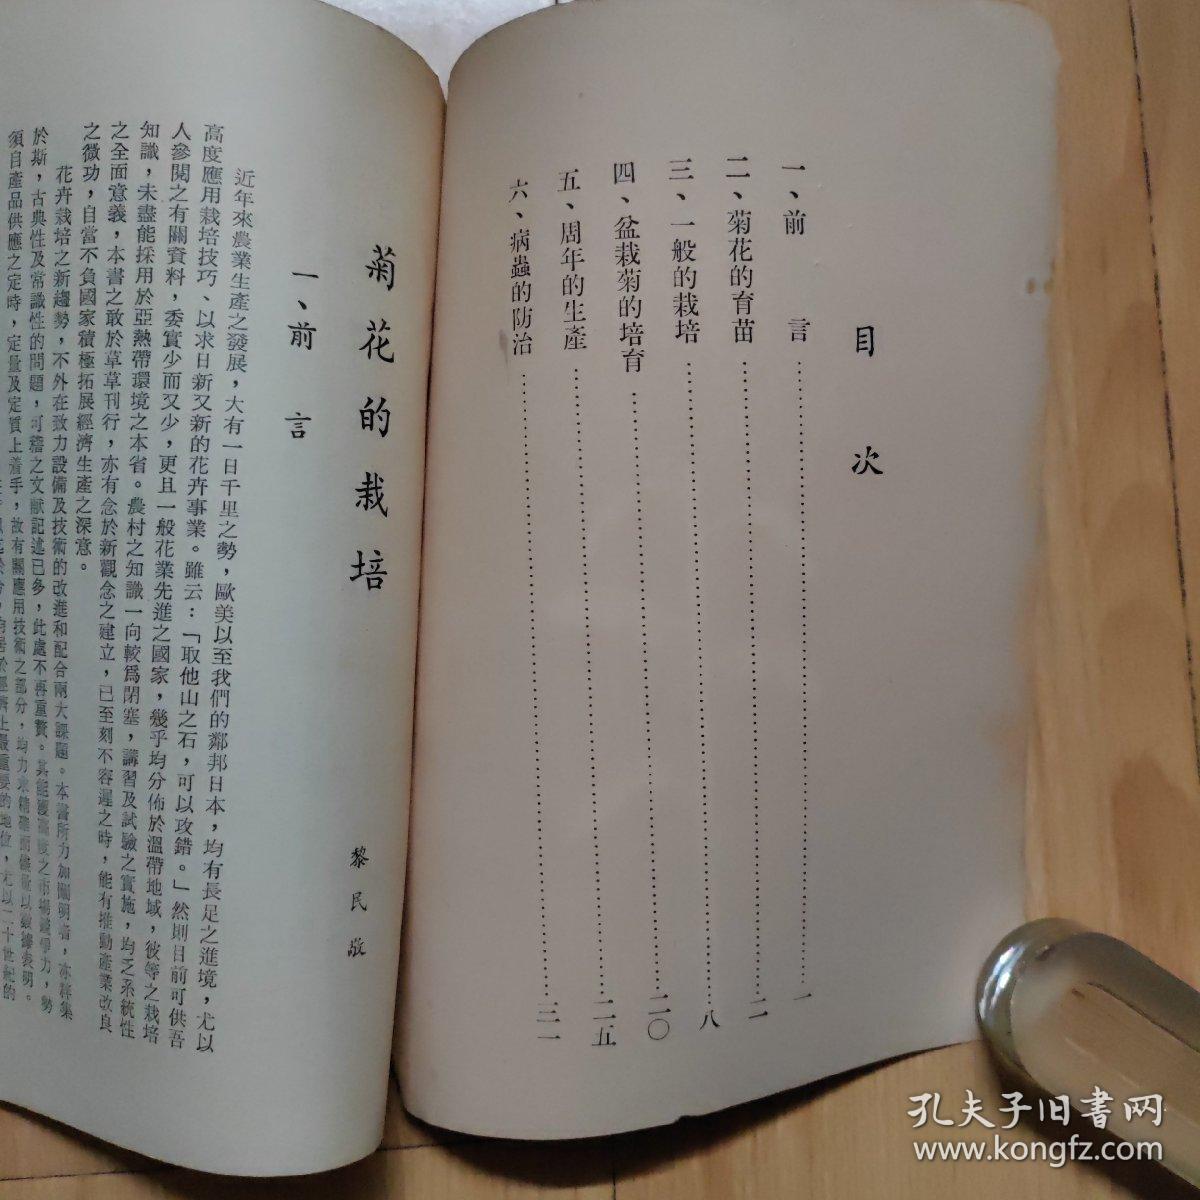 目次
一、前言……一
二、菊花的育苗……二
三、一般的栽培……八
四、盆栽菊的培育……二〇
五、周年的生產……二五
六、病蟲的防治……三一
菊花的栽培
黎民敬
一、前言
近年來農業生產之發展，大有一日千里之勢，歐美以至我們的鄰邦日本，均有長足之進境，尤以
高度應用栽培技巧、以求日新又新的花卉事業。雖云：「取他山之石，可以攻錯。」然則目前可供吾
人參閱之有關資料，委實少而又少，更且一般花業先進之國家，幾乎均分佈於溫帶地域，彼等之栽培
知識，未盡能採用於亞熱帶環境之本省。農村之知識一向較為閉塞，講習及試驗之實施，均乏系統性
之全面意義，本書之敢於草草刊行，亦有念於新觀念之建立，已至刻不容遲之時，能有推動產業改良
之微功，自當不負國家積極拓展經濟生產之深意。
花卉栽培之新趨勢，不外在致力設備及技術的改進和配合兩大課題。本書所力加闡明者，亦祥集
於斯，古典性及常識性的問題，可稽之文獻記述已多，此處不再重贅。其能獲高度之市場競爭力，勢
須自產品供應之定時，定量及定質上着手，故有關應用技術之部分，均力求精確而儘量以數據表明。
於經濟上最重要的地位，尤以二十世紀的
孔夫子旧書网
www.kongfz.com